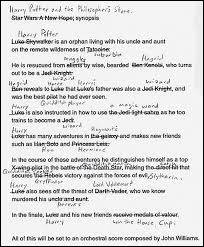 Harry Potter and the Philosopher's Stone.
Star Wars: A New Hope; synopsis
Harry Potter
Luke Skywalker is an orphan living with his uncle and aunt
on the remote wilderness of Tatooine.
Suburbia
Hagrid
He is rescued from aliens by wise, bearded Ben Kenobi, who turns
out to be a Jedi Knight.
wizard
Hagrid Harry Harry's wizard
Ben reveals to Luke that Luke's father was also a Jedi Knight, and
was the best pilot he had ever seen.
Quidditch player
Harry a magic wand
Luke is also instructed how to use the Jedi light sabre as he too
trains to become a Jedi.
wizard
Harry Hogwarts
Luke has many adventures in the galaxy and makes new friends
such as Han Solo and Princess Leia.
Ron Hermione
In the course of these adventures he distinguishes himself as a top
X-wing pilot in the battle of the Death Star, making the
secures the Rebels victory against the forces of evil.
Gryffindor Slytherin.
Harry Lord Voldemort
Luke also sees off the threat of Darth Vader, who we know
murdered his uncle and aunt.
parents
Harry
In the finale, Luke and his new friends receive medals of valour.
win the House Cup.
All of this will be set to an orchestral score composed by John Williams.